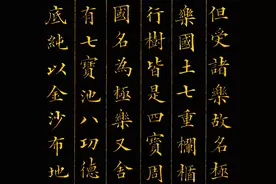 但受諸樂故名極
樂國土七重欄楯
行樹皆是四寶周
國名為極樂又舍
有七寶池八功德
底純以金沙布地